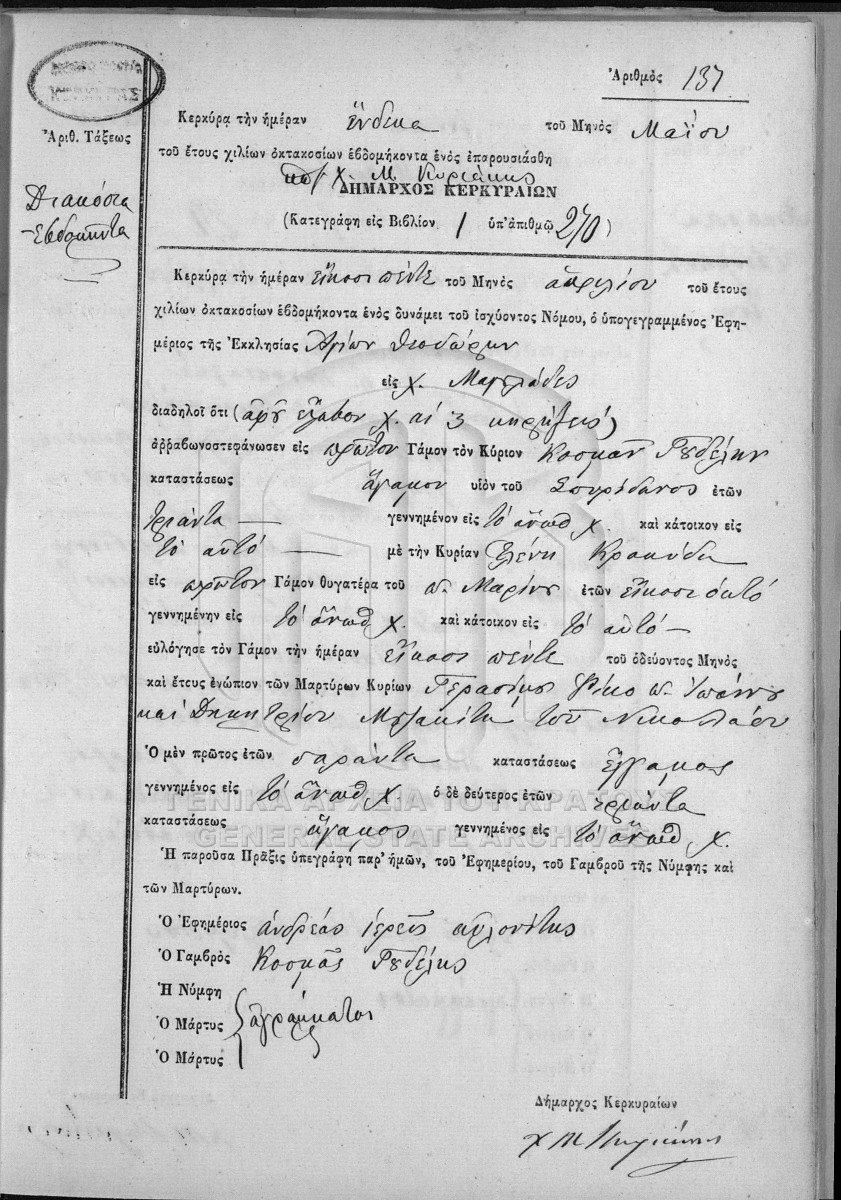 Ἀριθμὸς 137
ΚΕΡΚΥΡΑΣ
Ἀριθ. Τάξεως
Διακόσια
Ἑβδομῆντα
Κερκύρᾳ τὴν ἡμέραν ἕνδεκα τοῦ Μηνὸς Μαΐου
τοῦ ἔτους χιλίων ὀκτακοσίων ἑβδομήκοντα ἑνὸς ἐπαρουσιάσθη
Χ. Μ. Κυριάκης
ΔΗΜΑΡΧΟΣ ΚΕΡΚΥΡΑΙΩΝ
(Κατεγράφη εἰς Βιβλίον 1 ὑπ' ἀριθμῷ 270)
Κερκύρᾳ τὴν ἡμέραν εἴκοσι πέντε τοῦ Μηνὸς ἀπριλίου τοῦ ἔτους
χιλίων ὀκτακοσίων ἑβδομήκοντα ἑνὸς δυνάμει τοῦ ἰσχύοντος Νόμου, ὁ ὑπογεγραμμένος Ἐφη-
μέριος τῆς Ἐκκλησίας Ἁγίων Θεοδώρων
εἰς χ. Μαγουλάδες
διαδηλοῖ ὅτι (ἀφοῦ ἔλαβον χ. αἱ 3 κηρύξεις)
ἀῤῥαβωνοστεφάνωσεν εἰς πρῶτον Γάμον τὸν Κύριον Κοσμᾶν Γουδέλην
καταστάσεως ἄγαμον υἱὸν τοῦ Σπυρίδωνος ἐτῶν
τριάντα γεννημένον εἰς τὸ ἄνωθ χ. καὶ κάτοικον εἰς
τὸ αὐτό μὲ τὴν Κυρίαν Ἑλένη Κροκύδα
εἰς πρῶτον Γάμον θυγατέρα τοῦ π. Μαρίνου ἐτῶν εἴκοσι ὀκτὸ
γεννημένην εἰς τὸ ἄνωθ χ. καὶ κάτοικον εἰς τὸ αὐτό
εὐλόγησε τὸν Γάμον τὴν ἡμέραν εἴκοσι πέντε τοῦ ὁδεύοντος Μηνὸς
καὶ ἔτους ἐνώπιον τῶν Μαρτύρων Κυρίων Γερασίμου π. Ἰωάννου
καὶ Δημητρίου τοῦ Νικολάου
Ὁ μὲν πρῶτος ἐτῶν σαράντα καταστάσεως ἔγγαμος
γεννημένος εἰς τὸ ἄνωθ χ. ὁ δὲ δεύτερος ἐτῶν τριάντα
καταστάσεως ἄγαμος γεννημένος εἰς τὸ ἄνωθ χ.
ΓΕΝΙΚΑ ΑΡΧΕΙΑ ΤΟΥ ΚΡΑΤΟΥΣ
GENERAL STATE ARCHIVES
Ἡ παροῦσα Πρᾶξις ὑπεγράφη παρ' ἡμῶν, τοῦ Ἐφημερίου, τοῦ Γαμβροῦ τῆς Νύμφης καὶ
τῶν Μαρτύρων.
Ὁ Ἐφημέριος ἀνδρέας ἱερεὺς αὐλονίτης
Ὁ Γαμβρὸς Κοσμᾶς Γουδέλης
Ἡ Νύμφη
Ὁ Μάρτυς ἀγράμματοι
Ὁ Μάρτυς
Δήμαρχος Κερκυραίων
Χ Μ Κυριάκης